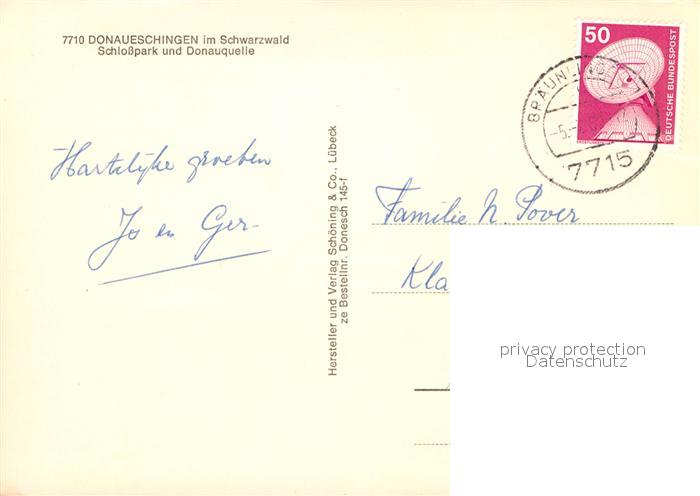 7710 DONAUESCHINGEN im Schwarzwald
Schloßpark und Donauquelle
50
DEUTSCHE BUNDESPOST
BRÄUNLINGEN
7715
Hartelijke groeten
Jo en Ger.
Hersteller und Verlag Schöning & Co., Lübeck
ze Bestellnr. Donesch 145-f
Familie N. Pover
Kla
privacy protection
Datenschutz